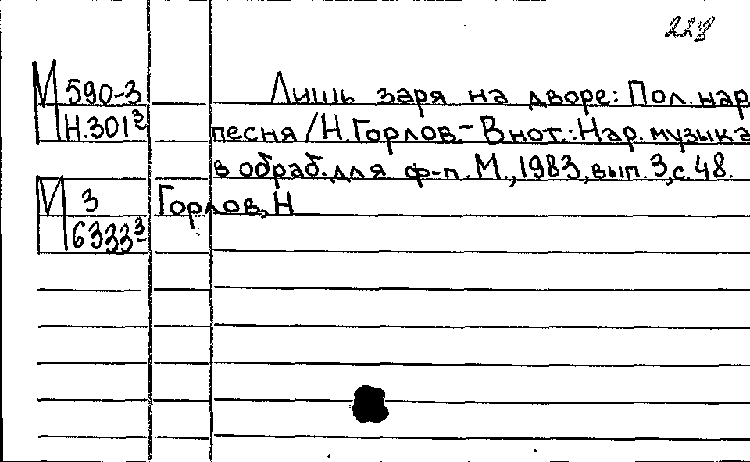 228
М 590-3 Лишь заря на дворе: Пол. нар
Н.301³ песня / Н. Горлов. - В нот.: Нар. музыка
в обраб. для ф-п. М., 1983, вып. 3, с. 48.
М 3 Горлов, Н
6333³